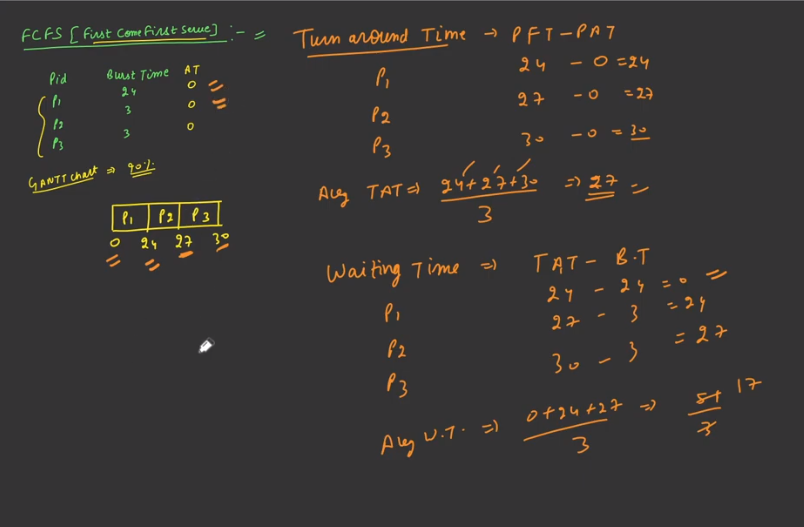 FCFS [First Come First Serve] :- =
Pid Burst Time AT
P1 24 0
P2 3 0
P3 3 0
GANTT chart ⇒ 90%
P1 P2 P3
0 24 27 30
Turn around Time → PFT-PAT
P1 24 - 0 = 24
P2 27 - 0 = 27
P3 30 - 0 = 30
Avg TAT ⇒ 24+27+30 ⇒ 27
3
Waiting Time ⇒ TAT - B.T
P1 24 - 24 = 0
P2 27 - 3 = 24
P3 30 - 3 = 27
Avg W.T. ⇒ 0+24+27 ⇒ 51 17
3 3